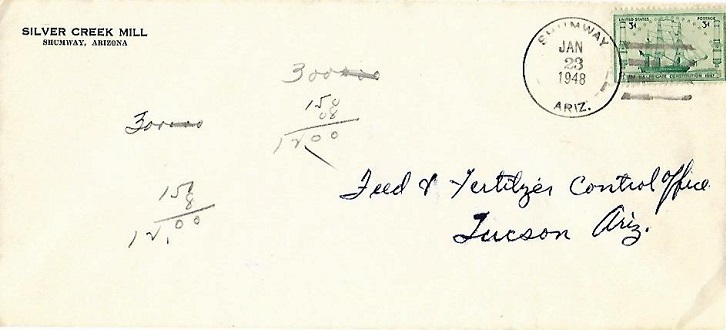 SILVER CREEK MILL
SHUMWAY, ARIZONA
SHUMWAY
JAN
23
1948
ARIZ.
UNITED STATES POSTAGE
3¢ 3¢
U.S. FRIGATE CONSTITUTION
300
150
08
1200
300
150
8
12.00
Feed & Fertilzer Control Office
Tucson Ariz.